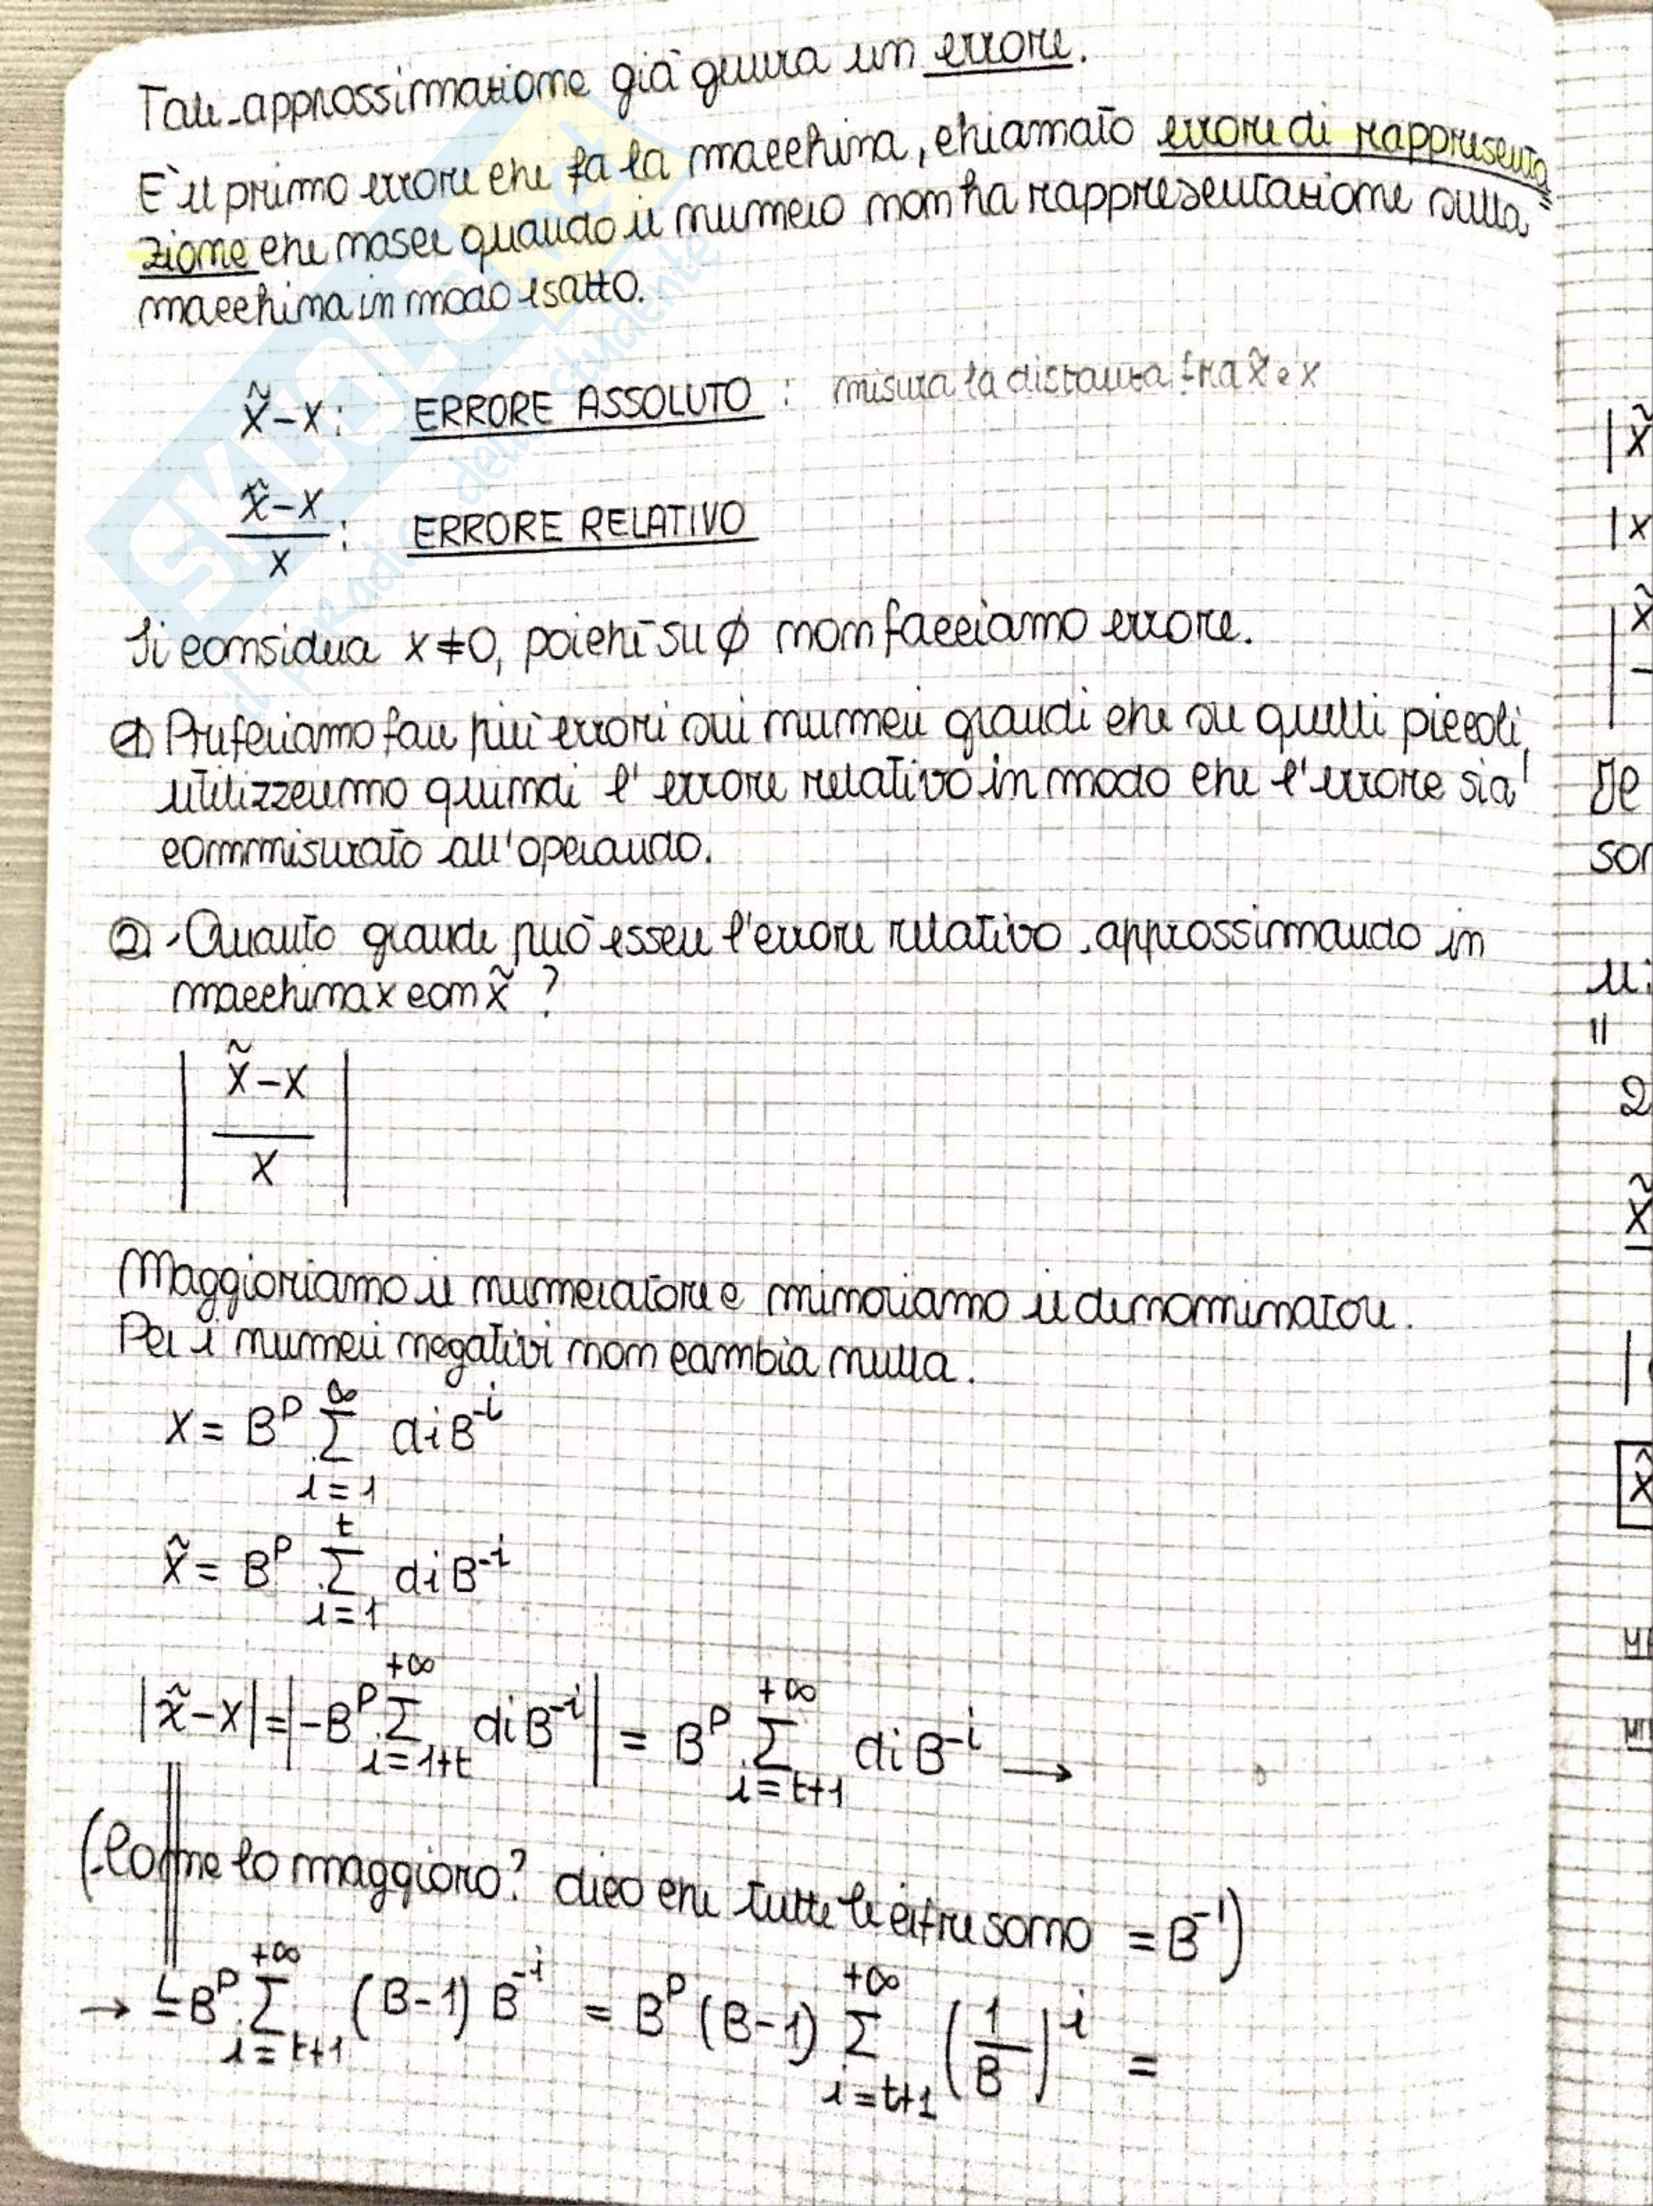 Tale approssimazione già genera un errore.
E' il primo errore che fa la macchina, chiamato errore di rappresenta=
zione che nasce quando il numero non ha rappresentazione sulla
macchina in modo esatto.
x̃-x: ERRORE ASSOLUTO : misura la distanza fra x̃ e x
(x̃-x)/x : ERRORE RELATIVO
Si considera x≠0, poiché su ϕ non facciamo errore.
① Preferiamo fare più errori sui numeri grandi che su quelli piccoli,
utilizzeremo quindi l'errore relativo in modo che l'errore sia
commisurato all'operando.
② Quanto grande può essere l'errore relativo approssimando in
macchina x con x̃ ?
| (x̃-x)/x |
Maggioriamo il numeratore e minoriamo il denominatore.
Per i numeri negativi non cambia nulla.
x = B^p ∑_{i=1}^{∞} di B^{-i}
x̃ = B^p ∑_{i=1}^{t} di B^{-i}
|x̃-x| = |-B^p ∑_{i=1+t}^{+∞} di B^{-i}| = B^p ∑_{i=t+1}^{+∞} di B^{-i} →
(Come lo maggioro? dico che tutte le cifre sono = B^{-1})
→ ≤ B^p ∑_{i=t+1}^{+∞} (B-1) B^{-i} = B^p (B-1) ∑_{i=t+1}^{+∞} (1/B)^i =
|x̃
|x
x̃
Se
2
x̃
x̃